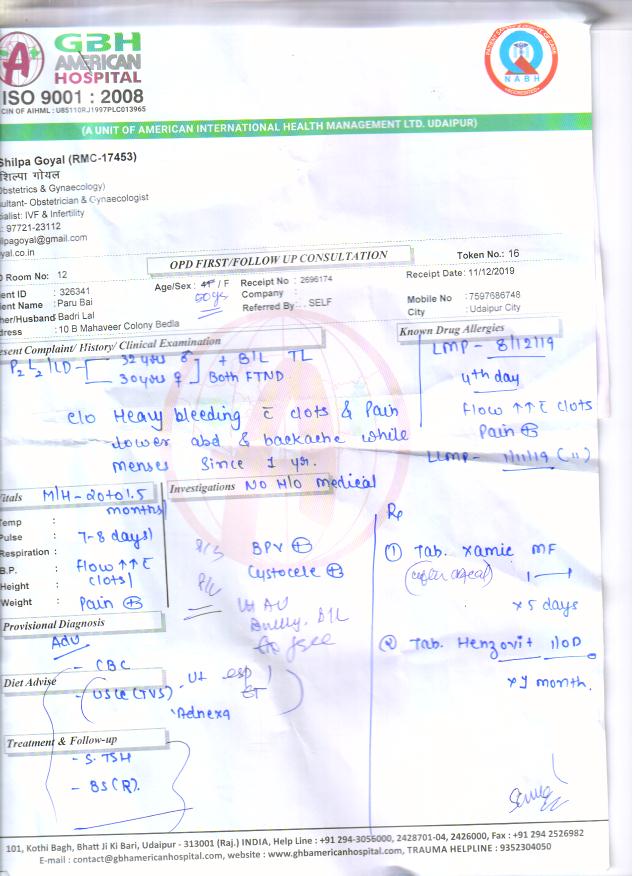 GBH
AMERICAN
HOSPITAL
ISO 9001 : 2008
CIN OF AIHML : U85110RJ1997PLC013965
NABH
(A UNIT OF AMERICAN INTERNATIONAL HEALTH MANAGEMENT LTD. UDAIPUR)
Shilpa Goyal (RMC-17453)
शिल्पा गोयल
bstetrics & Gynaecology)
sultant- Obstetrician & Gynaecologist
ialist: IVF & Infertility
: 97721-23112
lpagoyal@gmail.com
yal.co.in
OPD FIRST/FOLLOW UP CONSULTATION
Token No.: 16
Room No: 12
Age/Sex : / F
50 yrs
Receipt No : 2696174
Receipt Date: 11/12/2019
ent ID : 326341
Company :
ient Name : Paru Bai
Referred By: . SELF
Mobile No : 7597686748
her/Husband Badri Lal
City : Udaipur City
dress : 10 B Mahaveer Colony Bedla
esent Complaint/ History/ Clinical Examination
Known Drug Allergies
P2 L2 / LD - 32 yrs ♂ + B/L TL
30 yrs ♀ Both FTND
LMP - 8/12/19
4th day
Flow ↑↑ c̄ clots
Pain ⊕
LLMP - 1/11/19 (")
c/o Heavy bleeding c̄ clots & Pain
lower abd & backache while
menses since 1 yr.
itals
M/H - 20 to 1.5
months
Investigations
No H/O medical
Temp :
Pulse :
7-8 days)
Respiration :
B.P. :
Flow ↑↑ c̄
clots)
Height :
Weight :
Pain ⊕
P/S
BPV ⊕
Cystocele ⊕
P/V
Ut AV
Bulky, B/L
Rp
① Tab. Xamic MF
(after meal) 1——1
x 5 days
② Tab. Henzovit 1 OD
x 1 month.
Provisional Diagnosis
Adv
- CBC
Diet Advise
- USG (TVS) - Ut
ET
Adnexa
Treatment & Follow-up
- S. TSH
- BS (R).
101, Kothi Bagh, Bhatt Ji Ki Bari, Udaipur - 313001 (Raj.) INDIA, Help Line : +91 294-3056000, 2428701-04, 2426000, Fax : +91 294 2526982
E-mail : contact@gbhamericanhospital.com, website : www.gbhamericanhospital.com, TRAUMA HELPLINE : 9352304050